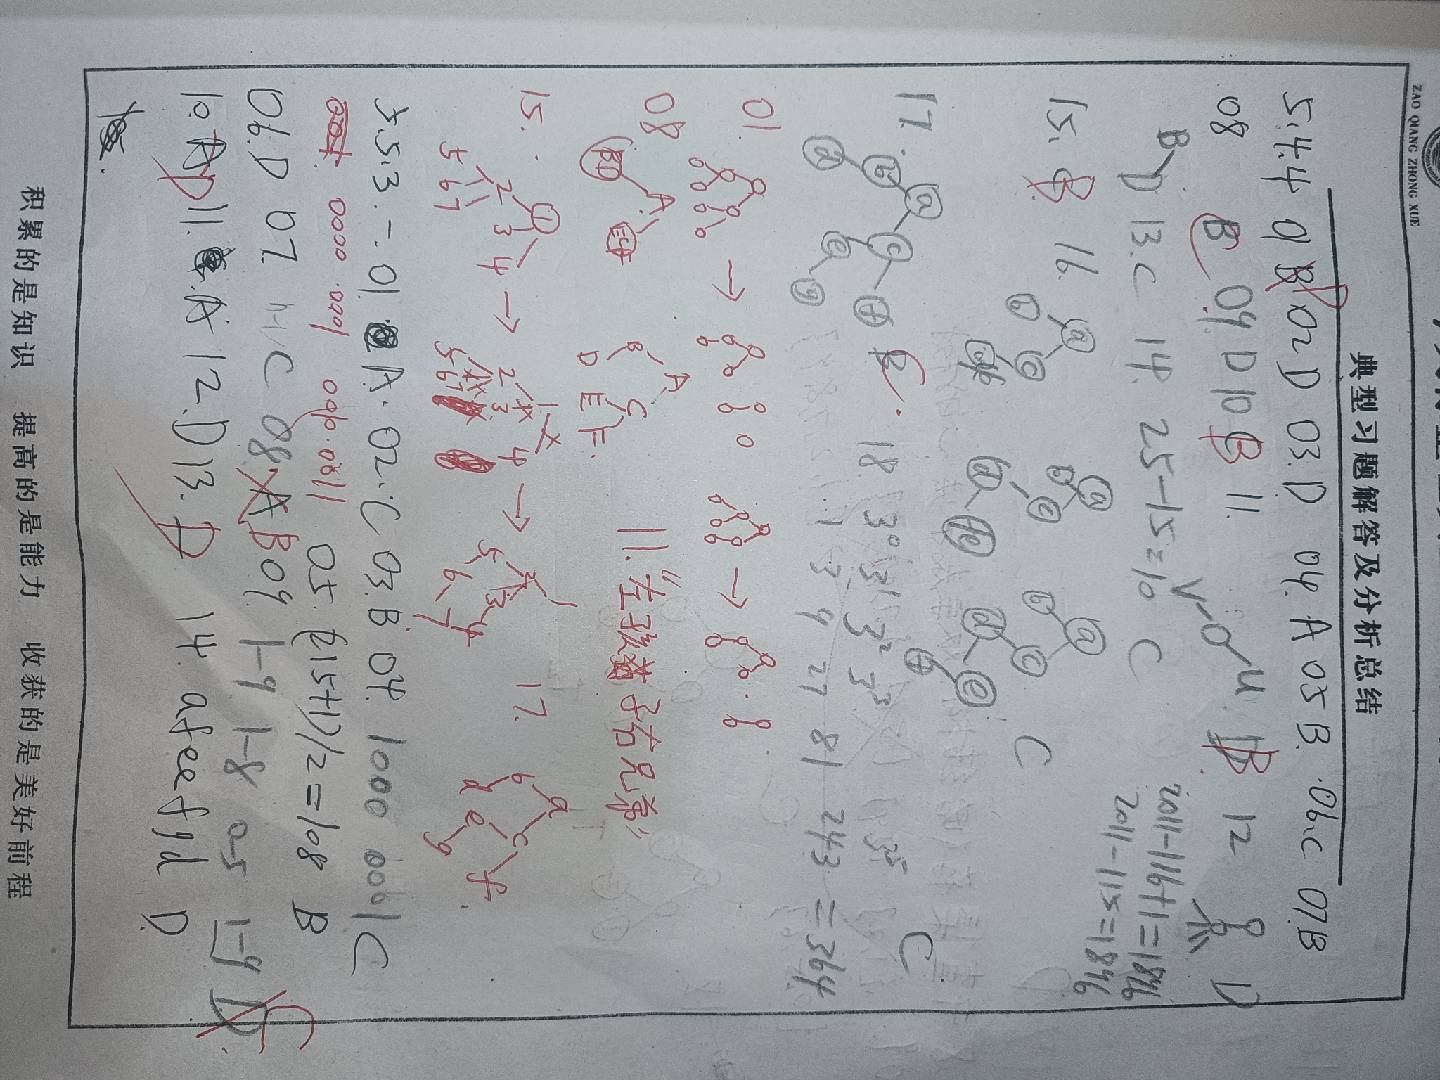 ZAO QIANG ZHONG XUE
典型习题解答及分析总结
5.4.4 01 B D 02 D 03. D 04. A 05 B. 06.C 07.B
08 B C 09. D 10 B 11. V O U B 12 D
B D 13.C 14. 25-15=10 C 2011-116+1=1896
2011-115=1896
15. B 16. a b c a b c d e a b c d e f C
17. a b c d e f g C 18. 3⁰ 3¹ 3² 3³ 3⁵ C
1 3 9 27 81 243 =364
01.
08 A BD ECF A B C D E F. 11."左孩子右兄弟"
15. 1 2 3 4 5 6 7 → 1 2 3 4 5 6 7 → 1 2 3 4 5 6 7 17. a b c d e f g
5.5.3. 一. 01. A. 02. C 03. B 04. 1000 0001 C
0000 0001 0010 0011 05. (215+1)/2=108 B
06.D 07. C 08. A B 09. 1-9 1-8 0-5 1-9 D C
10. A D 11. A 12. D 13. D 14. afeefgd D.
积累的是知识 提高的是能力 收获的是美好前程